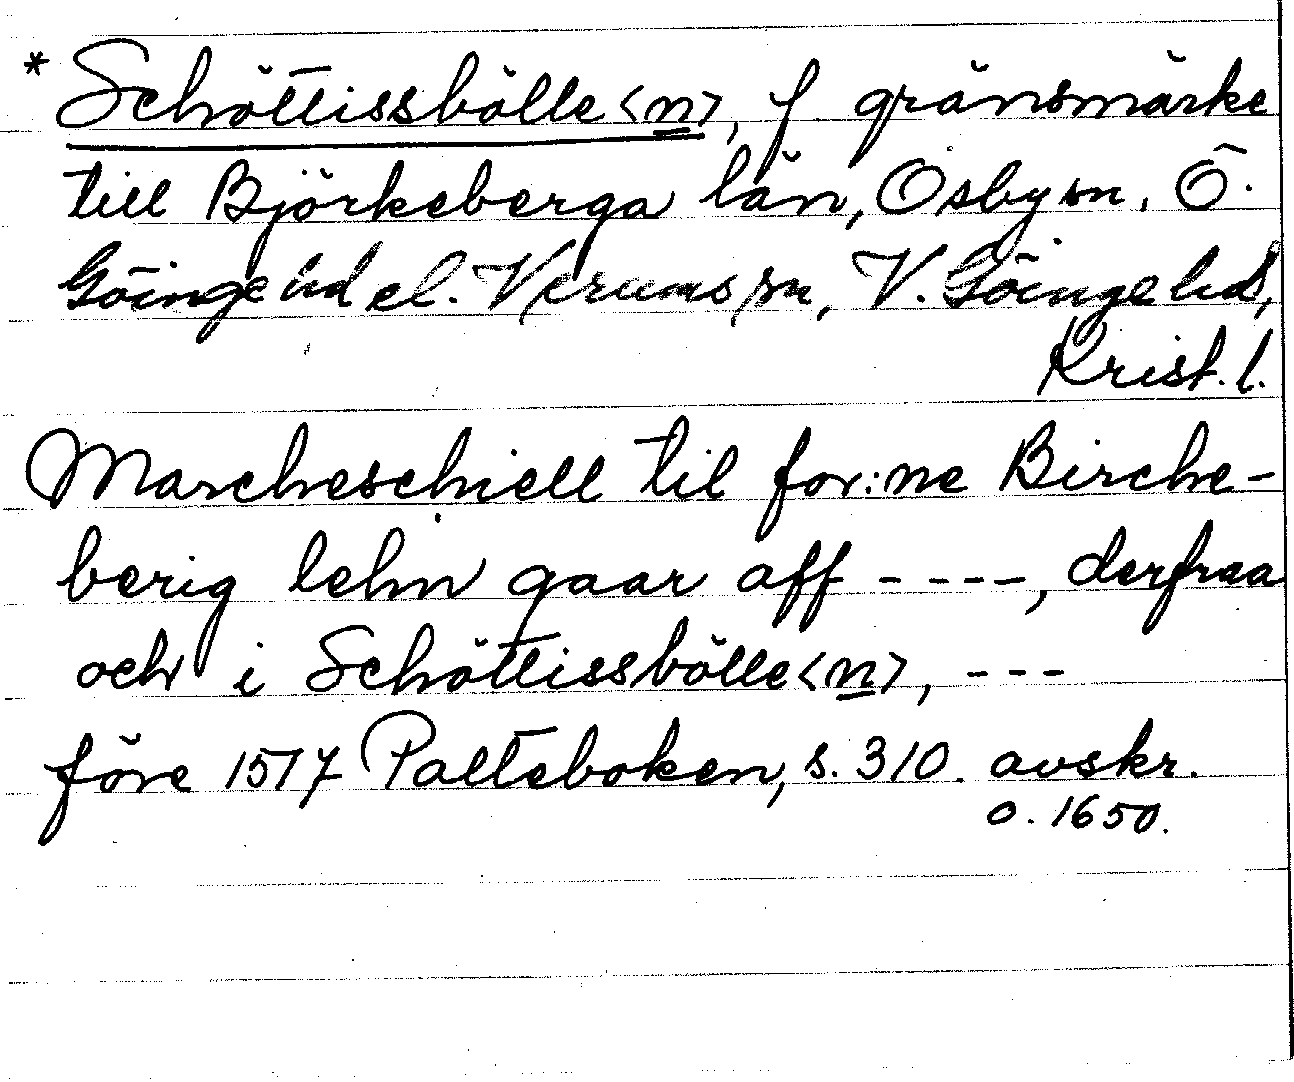 * Schöttissbölle<n>, f gränsmärke
till Björkeberga län, Osby sn, Ö.
Göinge hd el. Verums sn, V. Göinge hd,
Krist. l.
Marcheschiell til for:ne Birche-
berig lehn gaar aff ----, derfraa
och i Schöttissbölle<n>, ---
före 1517 Palteboken, s. 310. avskr.
o. 1650.